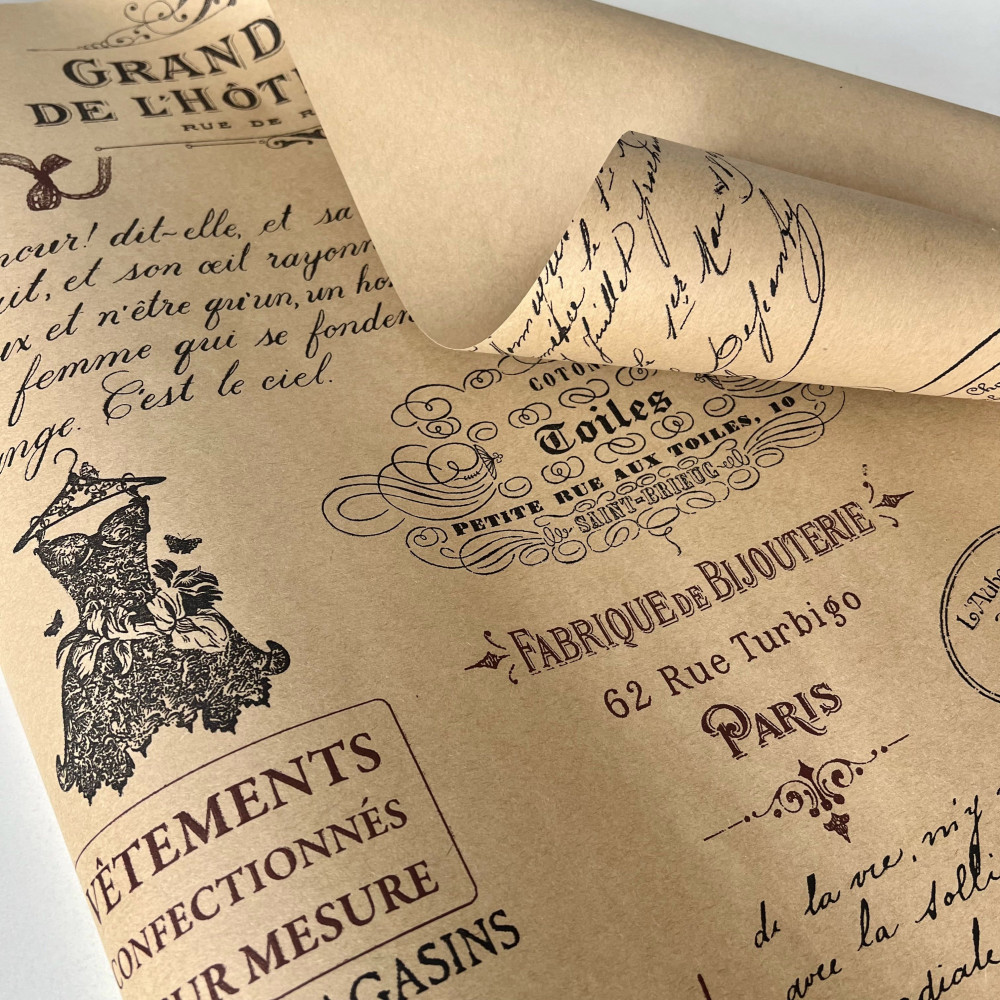 GRAND
DE L'HÔT
RUE DE R
mour! dit-elle, et sa
uit, et son œil rayonn
ux et n'être qu'un, un ho
femme qui se fonden
ange. C'est le ciel.
Juillet prochain
1er Mai
Dejeandy
COTON
Toiles
PETITE RUE AUX TOILES, 10
SAINT-BRIEUC
FABRIQUE DE BIJOUTERIE
62 Rue Turbigo
PARIS
L'Aube
VÊTEMENTS
CONFECTIONNÉS
UR MESURE
AGASINS
de la vie, m'y
avec la solli
diale